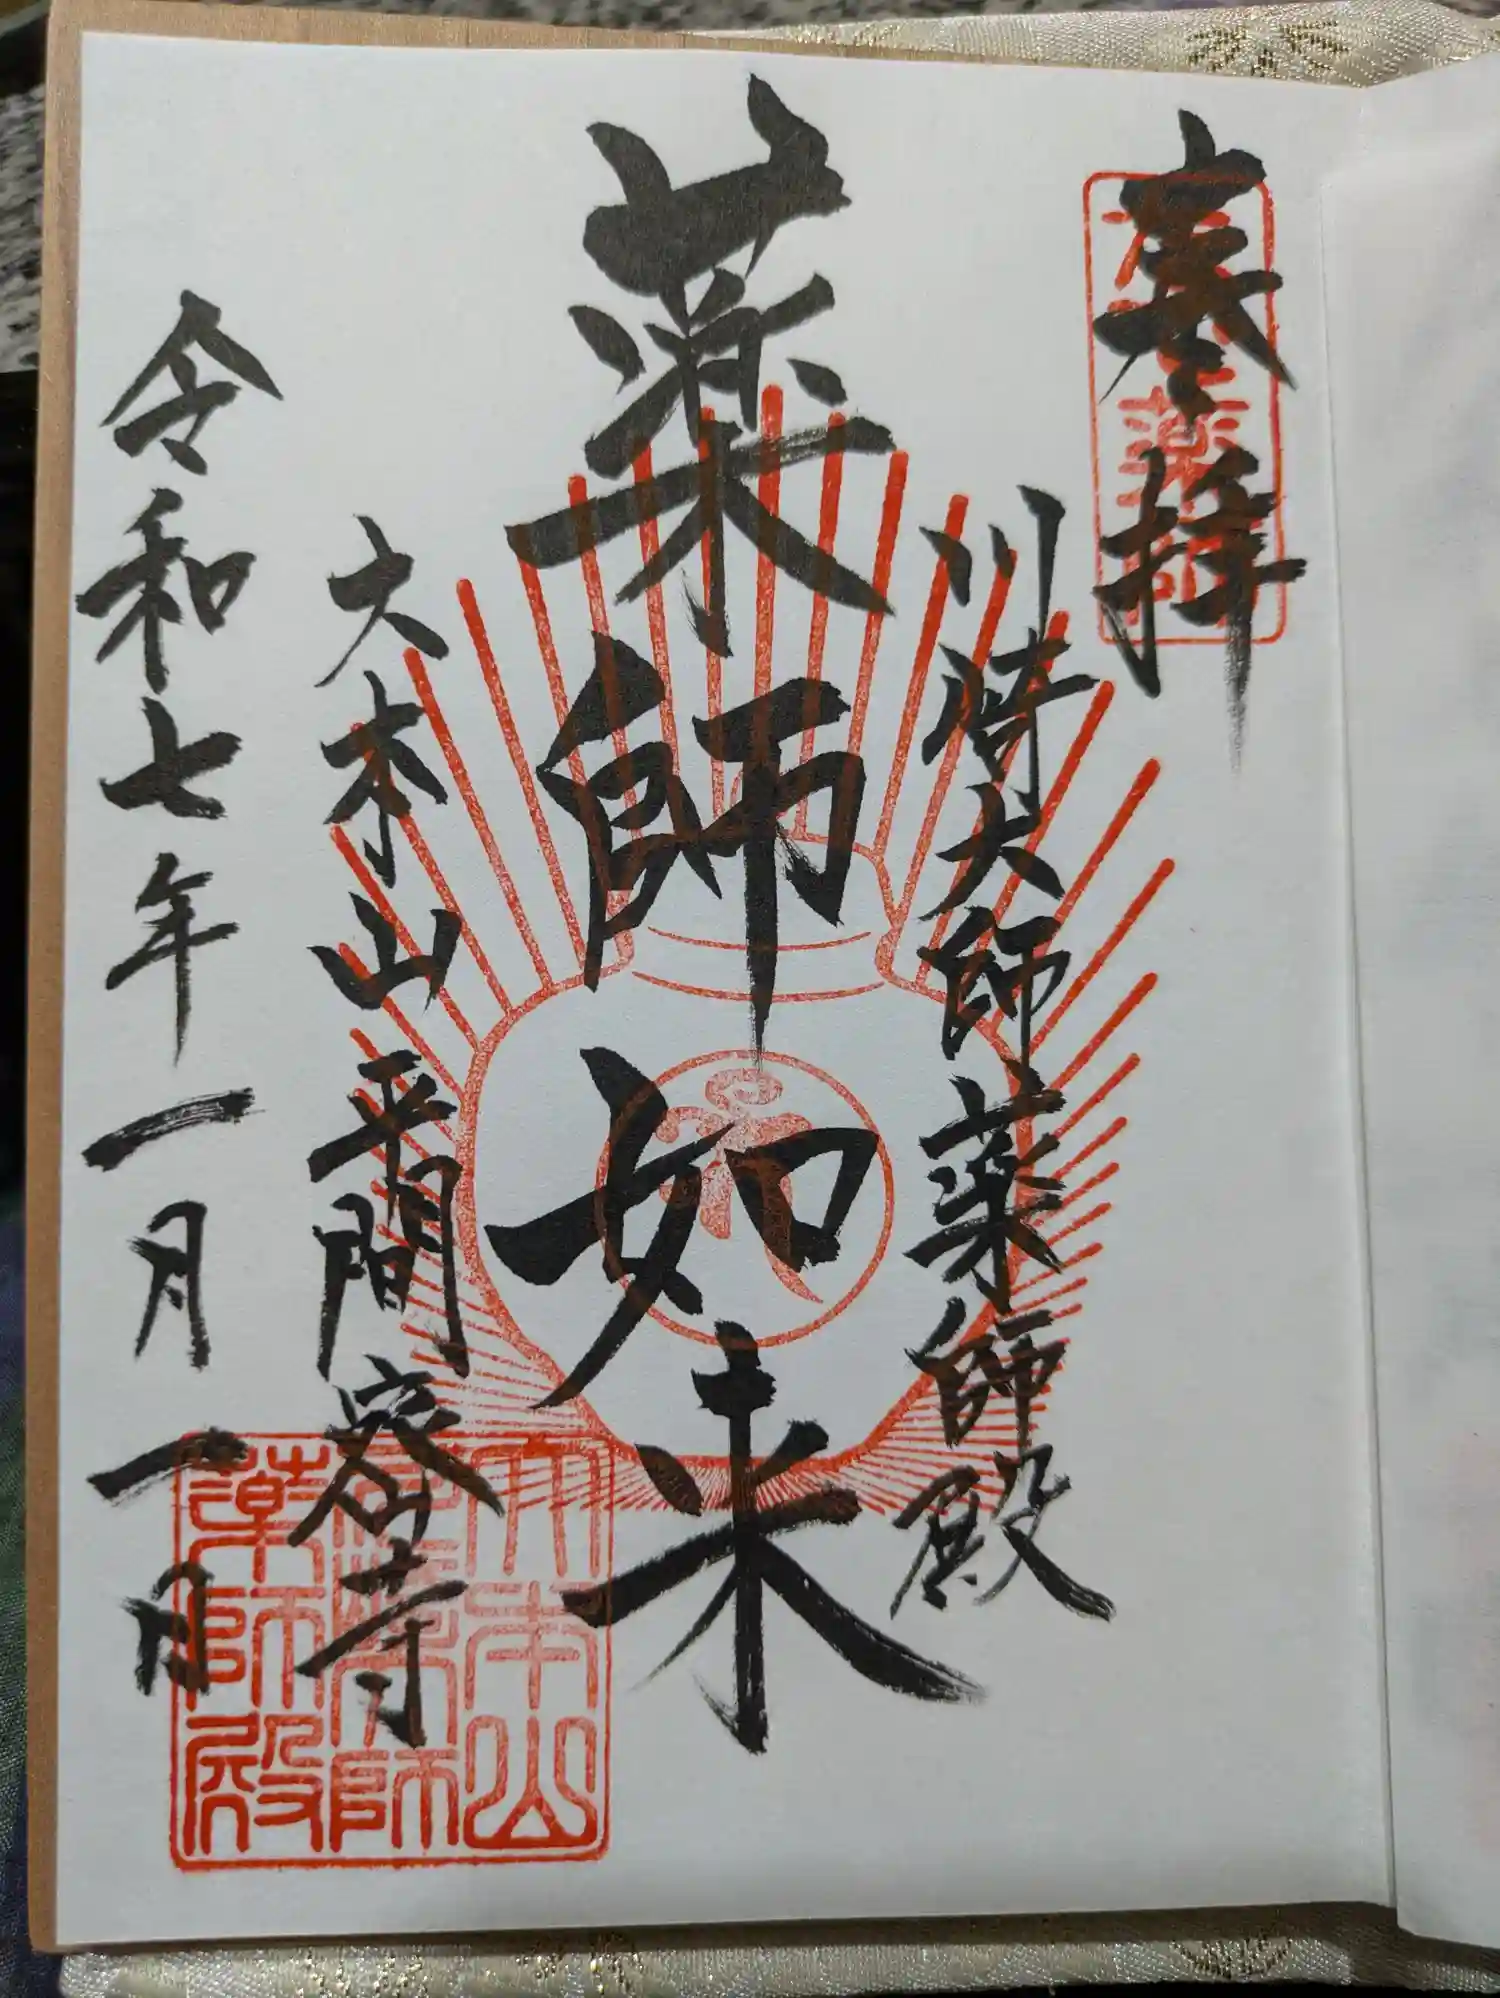 奉拝
川崎大師薬師殿
薬師如来
大本山平間寺
令和七年一月一日
大本山
薬師殿